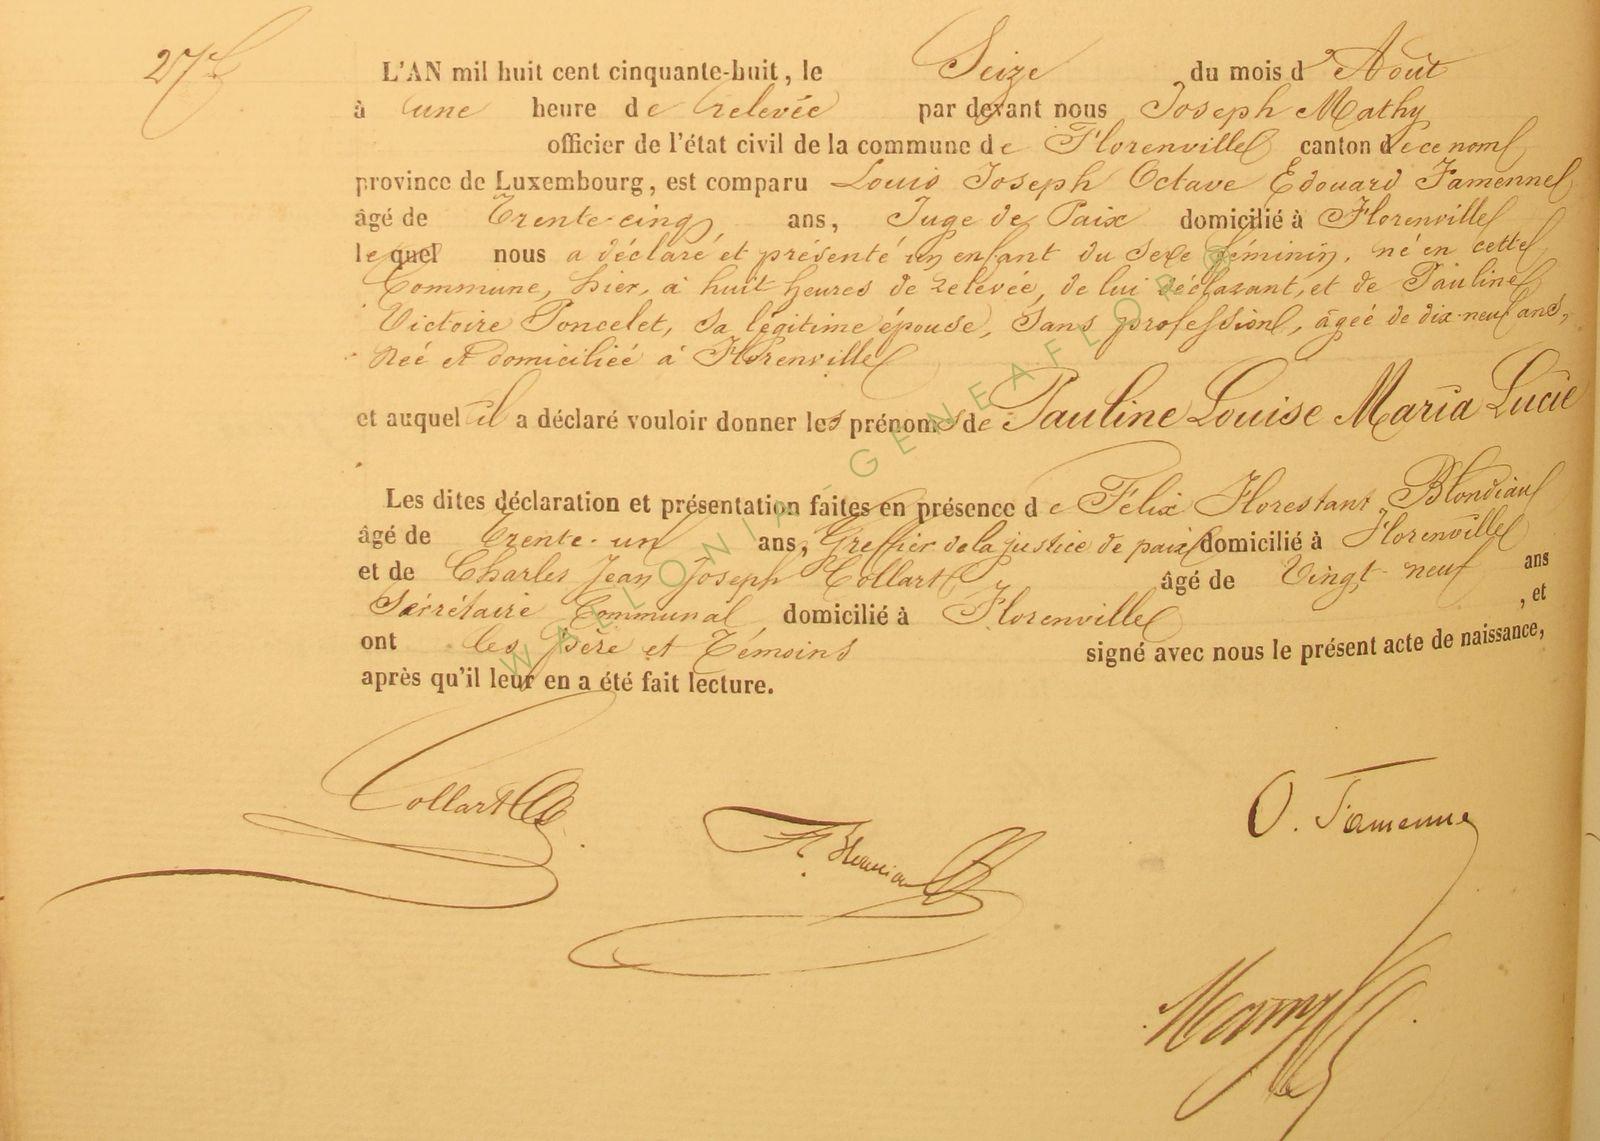 27
L'AN mil huit cent cinquante-huit, le Seize du mois d'Août
à une heure de relevée par devant nous Joseph Mathy
officier de l'état civil de la commune de Florenville canton de ce nom
province de Luxembourg, est comparu Louis Joseph Octave Edouard Famenne
âgé de Trente-cinq ans, Juge de Paix domicilié à Florenville
lequel nous a déclaré et présenté un enfant du sexe féminin, né en cette
Commune, hier, à huit heures de relevée, de lui déclarant, et de Pauline
Victoire Poncelet, sa légitime épouse, sans profession, âgée de dix-neuf ans,
née et domiciliée à Florenville
et auquel il a déclaré vouloir donner les prénoms de Pauline Louise Maria Lucie
Les dites déclaration et présentation faites en présence de Félix Florestant Blondiau
âgé de Trente-un ans, Greffier de la justice de paix domicilié à Florenville
et de Charles Jean Joseph Collart âgé de Vingt-neuf ans
Secrétaire Communal domicilié à Florenville, et
ont les père et Témoins signé avec nous le présent acte de naissance,
après qu'il leur en a été fait lecture.
WALLONIA-GENEAFLORE
Collart
O. Famenne
Mathy